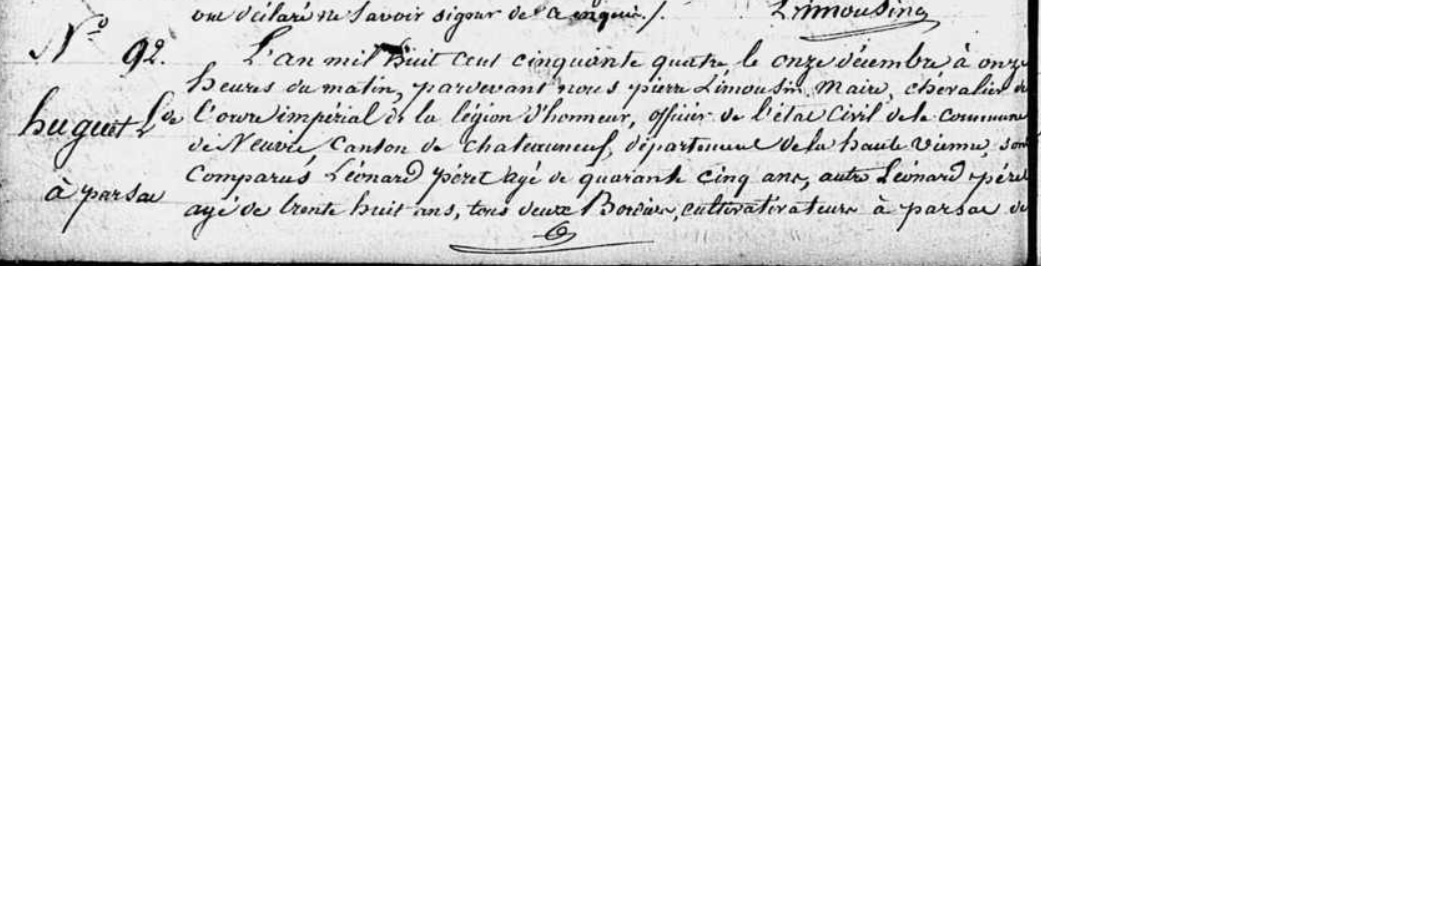 ont déclaré ne savoir signer de ce enquis./. Limousin
N° 92. L'an mil huit cent cinquante quatre, le onze décembre à onze
heures du matin, pardevant nous pierre Limousin, Maire, chevalier de
huguet L.de l'ordre impérial de la légion d'honneur, officier de l'état Civil de la Commune
de Neuvic, Canton de Chateauneuf, département de la haute vienne, sont
Comparus Léonard péret agé de quarante cinq ans, autre Léonard péret
à parsac agé de trente huit ans, tous deux Bordiers, cultivativateurs à parsac de